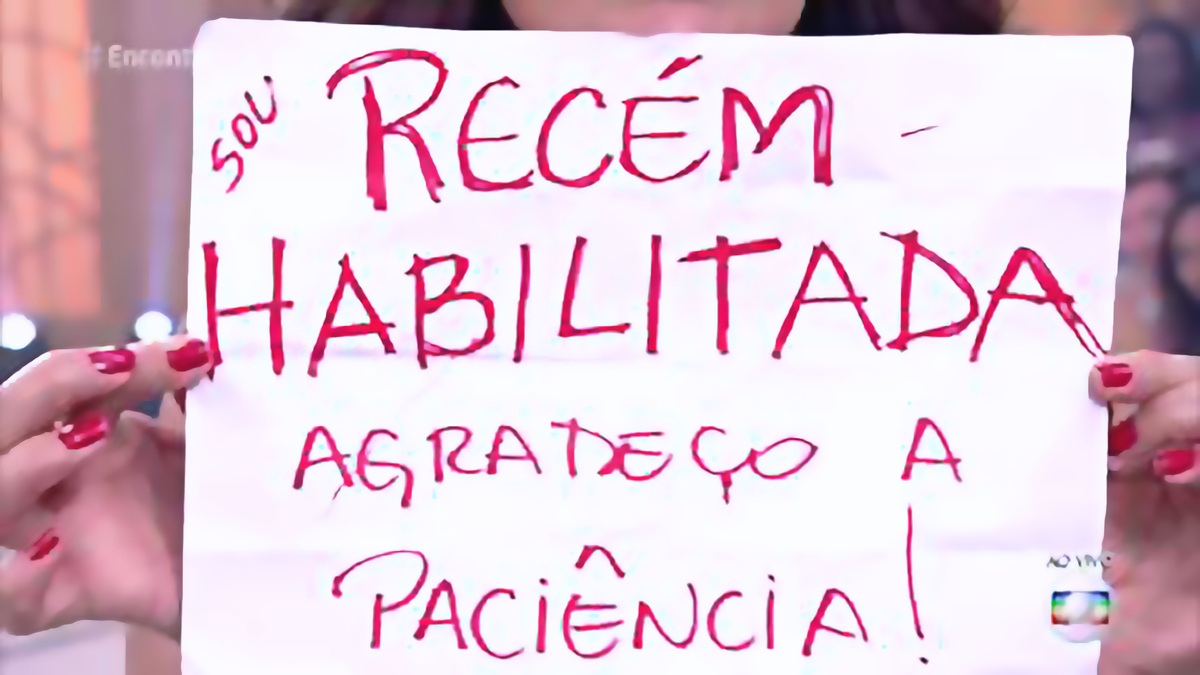 # Encont
SOU RECÉM -
HABILITADA
AGRADEÇO A
PACIÊNCIA!
AO VIVO